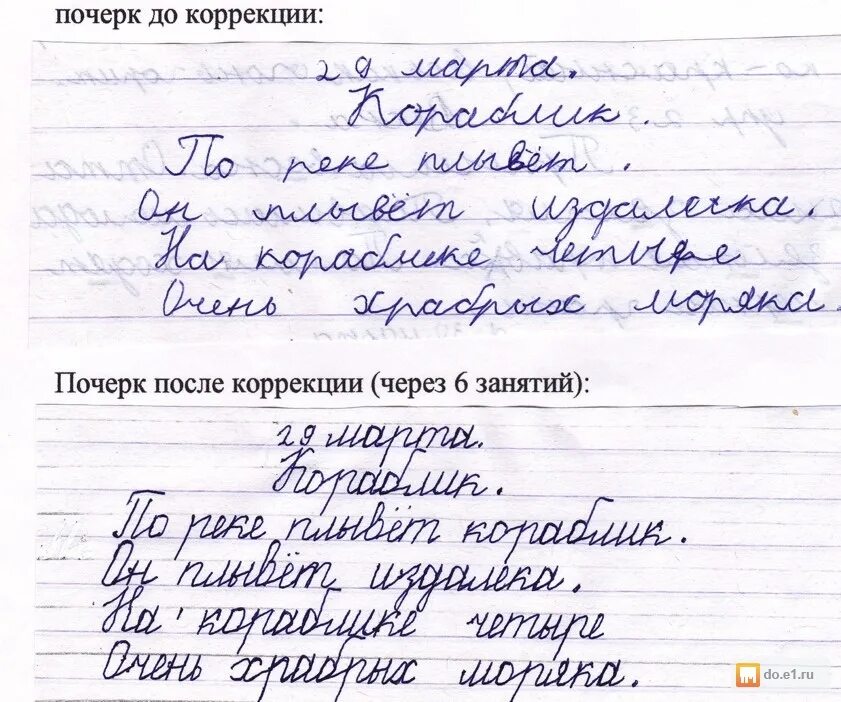 почерк до коррекции:
29 марта.
Кораблик.
По реке плывёт.
Он плывёт издалека.
На кораблике четыре
Очень храбрых моряка.
Почерк после коррекции (через 6 занятий):
29 марта.
Кораблик.
По реке плывёт кораблик.
Он плывёт издалека.
На кораблике четыре
Очень храбрых моряка.
do.e1.ru